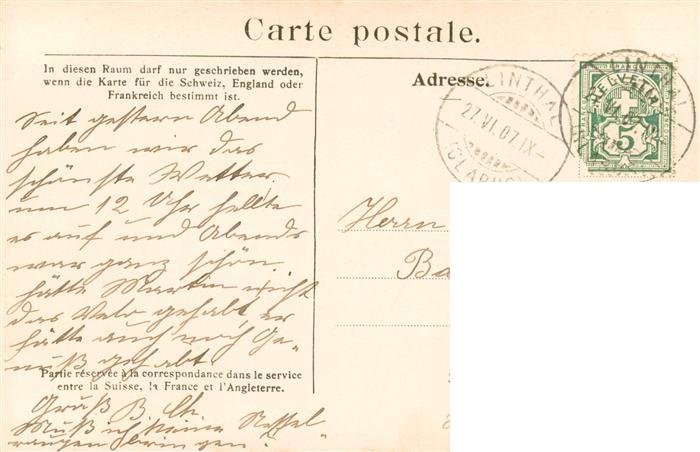 Carte postale.
In diesen Raum darf nur geschrieben werden,
wenn die Karte für die Schweiz, England oder
Frankreich bestimmt ist.
Seit gestern Abend
haben wir das
schönste Wetter,
um 12 Uhr hellte
es auf und Abends
war ganz schön,
hätte Martin nicht
das Velo gehabt, er
hätte auch noch Ge-
nuß gehabt.
Partie réservée à la correspondance dans le service
entre la Suisse, la France et l'Angleterre.
Gruß B. Ch.
Muß ich keine Nessel-
bringen?
Adresse.
LINTHAL
27.VI.07.IX-
(GLARUS)
HELVETIA
5
LINTHAL
Herrn
Ba